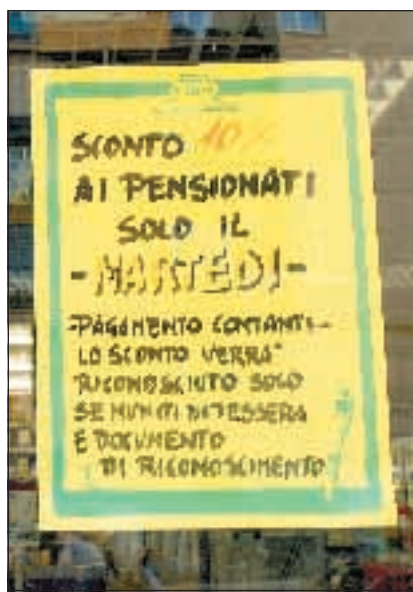 SCONTO 10%
AI PENSIONATI
SOLO IL
-MARTEDI-
-PAGAMENTO CONTANTI-
LO SCONTO VERRA'
RICONOSCIUTO SOLO
SE MUNITI DI TESSERA
E DOCUMENTO
DI RICONOSCIMENTO